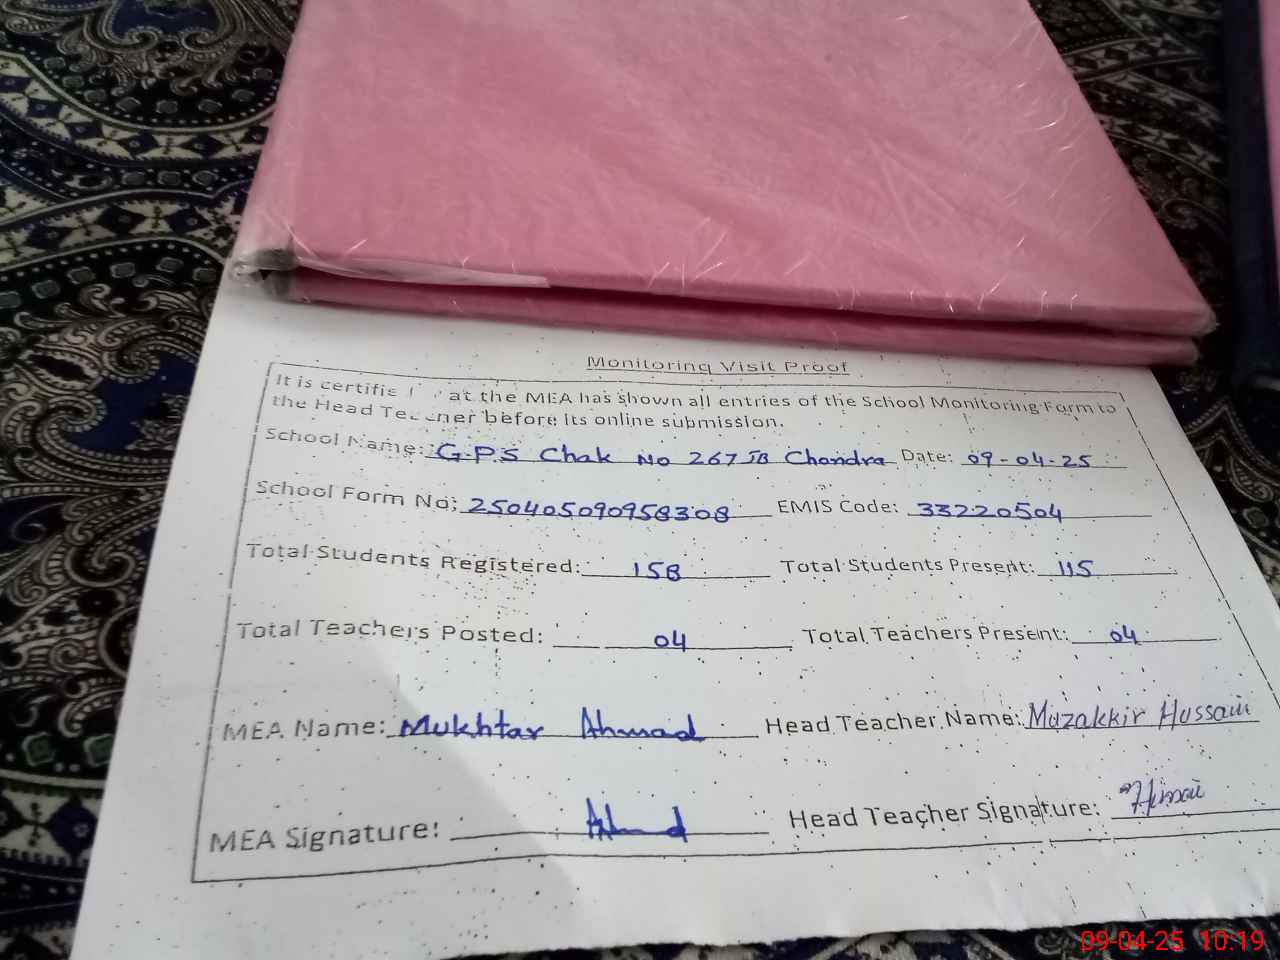 Monitoring Visit Proof
It is certifie at the MEA has shown all entries of the School Monitoring Form to
the Head Teacher before its online submission.
School Name: G.P.S Chak No 267 JB Chandra Date: 09-04-25
School Form No: 25040509095830B EMIS Code: 33220504
Total Students Registered: 158 Total Students Present: 115
Total Teachers Posted: 04 Total Teachers Present: 04
MEA Name: Mukhtar Ahmad Head Teacher Name: Muzakkir Hussain
MEA Signature: Ahmad Head Teacher Signature:
09-04-25 10:19